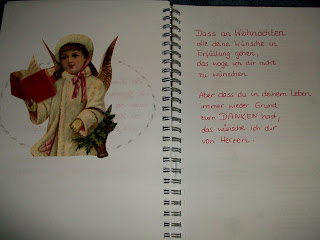 Dass an Weihnachten
alle deine Wünsche in
Erfüllung gehen,
das wage ich dir nicht
zu wünschen.
Aber dass du in deinem Leben
immer wieder Grund
zum DANKEN hast,
das wünsche ich dir
von Herzen.